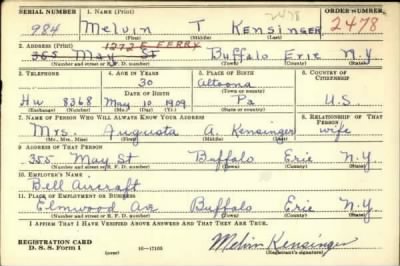 SERIAL NUMBER 1. NAME (Print) ORDER NUMBER
984 Melvin T Kensinger 2478 2478
(First) (Middle) (Last)
2. ADDRESS (Print) 1272 E FERRY
355 May St Buffalo Erie N.Y
(Number and street or R. F. D. number) (Town) (County) (State)
3. TELEPHONE 4. AGE IN YEARS 5. PLACE OF BIRTH 6. COUNTRY OF CITIZENSHIP
30 Altoona
DATE OF BIRTH (Town or county)
Hu 8368 May 10 1909 Pa U.S.
(Exchange) (Number) (Mo.) (Day) (Yr.) (State or country)
7. NAME OF PERSON WHO WILL ALWAYS KNOW YOUR ADDRESS 8. RELATIONSHIP OF THAT PERSON
Mrs. Augusta A. Kensinger wife
(Mr., Mrs., Miss) (First) (Middle) (Last)
9. ADDRESS OF THAT PERSON
355 May St Buffalo Erie N.Y.
(Number and street or R. F. D. number) (Town) (County) (State)
10. EMPLOYER'S NAME
Bell Aircraft
11. PLACE OF EMPLOYMENT OR BUSINESS
Elmwood Ave Buffalo Erie N.Y
(Number and street or R. F. D. number) (Town) (County) (State)
I AFFIRM THAT I HAVE VERIFIED ABOVE ANSWERS AND THAT THEY ARE TRUE.
REGISTRATION CARD
D. S. S. Form 1 (over) 16—17105 Melvin Kensinger
(Registrant's signature)